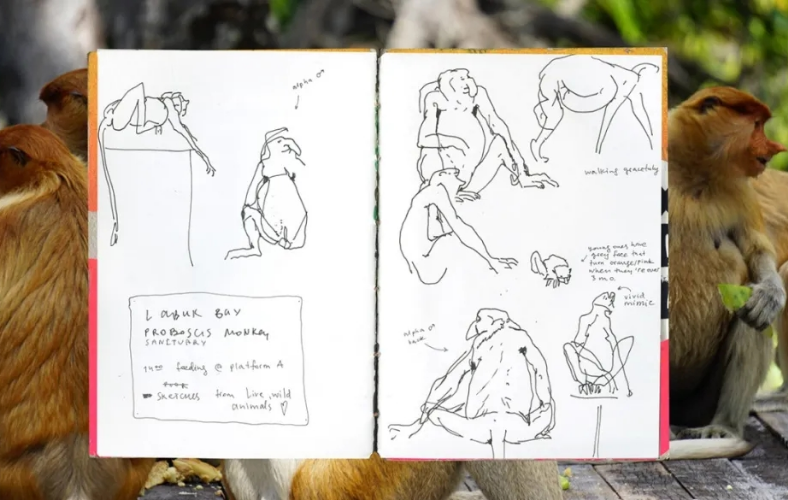 alpha ♂
LABUK BAY
PROBOSCIS MONKEY
SANCTUARY
14⁰⁰ feeding @ platform A
sketches from live, wild
animals ♡
walking gracefully
young ones have
grey face that
turn orange/pink
when they're over
3 m.o.
vivid
mimic
alpha ♂
back